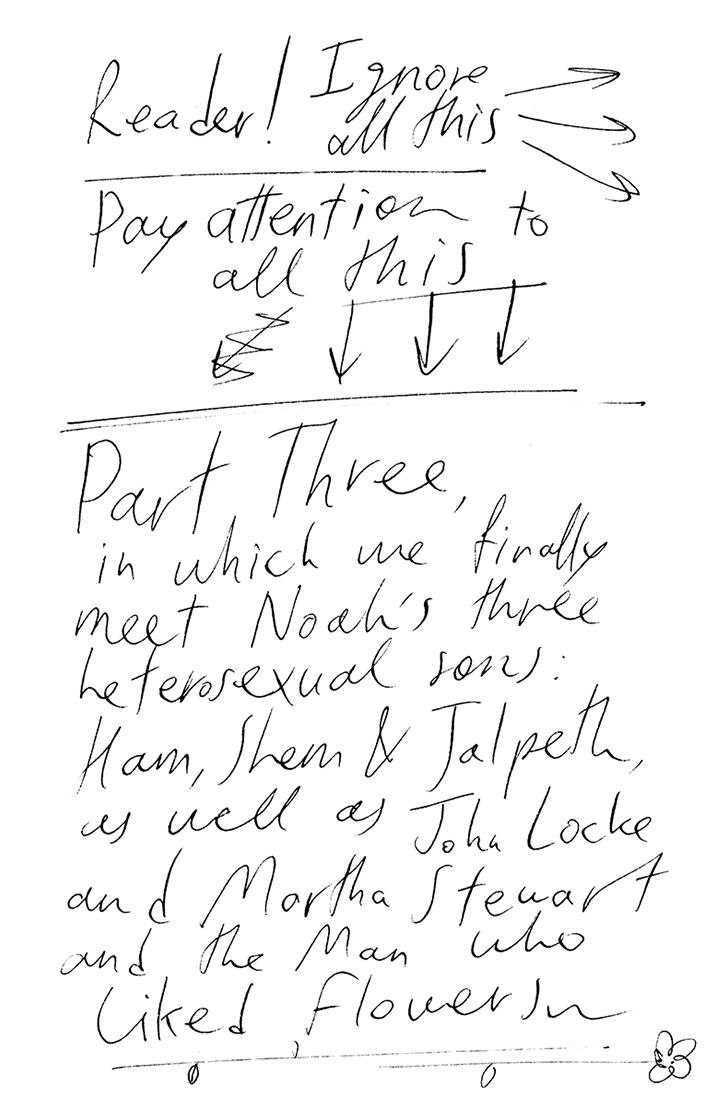 Reader! Ignore
all this
Pay attention to
all this
Part Three,
in which we finally
meet Noah's three
heterosexual sons:
Ham, Shem & Jalpeth,
as well as John Locke
and Martha Stewart
and the Man who
Liked Flowers